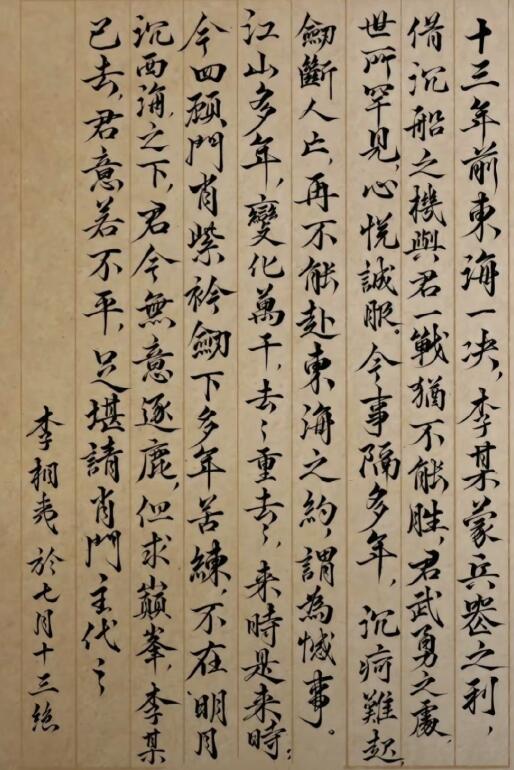 十三年前東海一决，李某蒙兵器之利，
借沉船之機與君一戰猶不能勝，君武勇之處，
世所罕見，心悅誠服。今事隔多年，沉疴難起，
劒斷人亡，再不能赴東海之約，謂為憾事。
江山多年，變化萬千，去〻重去〻，来時是来時。
今四顧門肖紫衿劒下多年苦練，不在明月
沉西海之下，君今無意逐鹿，但求巔峯，李某
已去，君意若不平，足堪請肖門主代〻
李相夷於七月十三絶